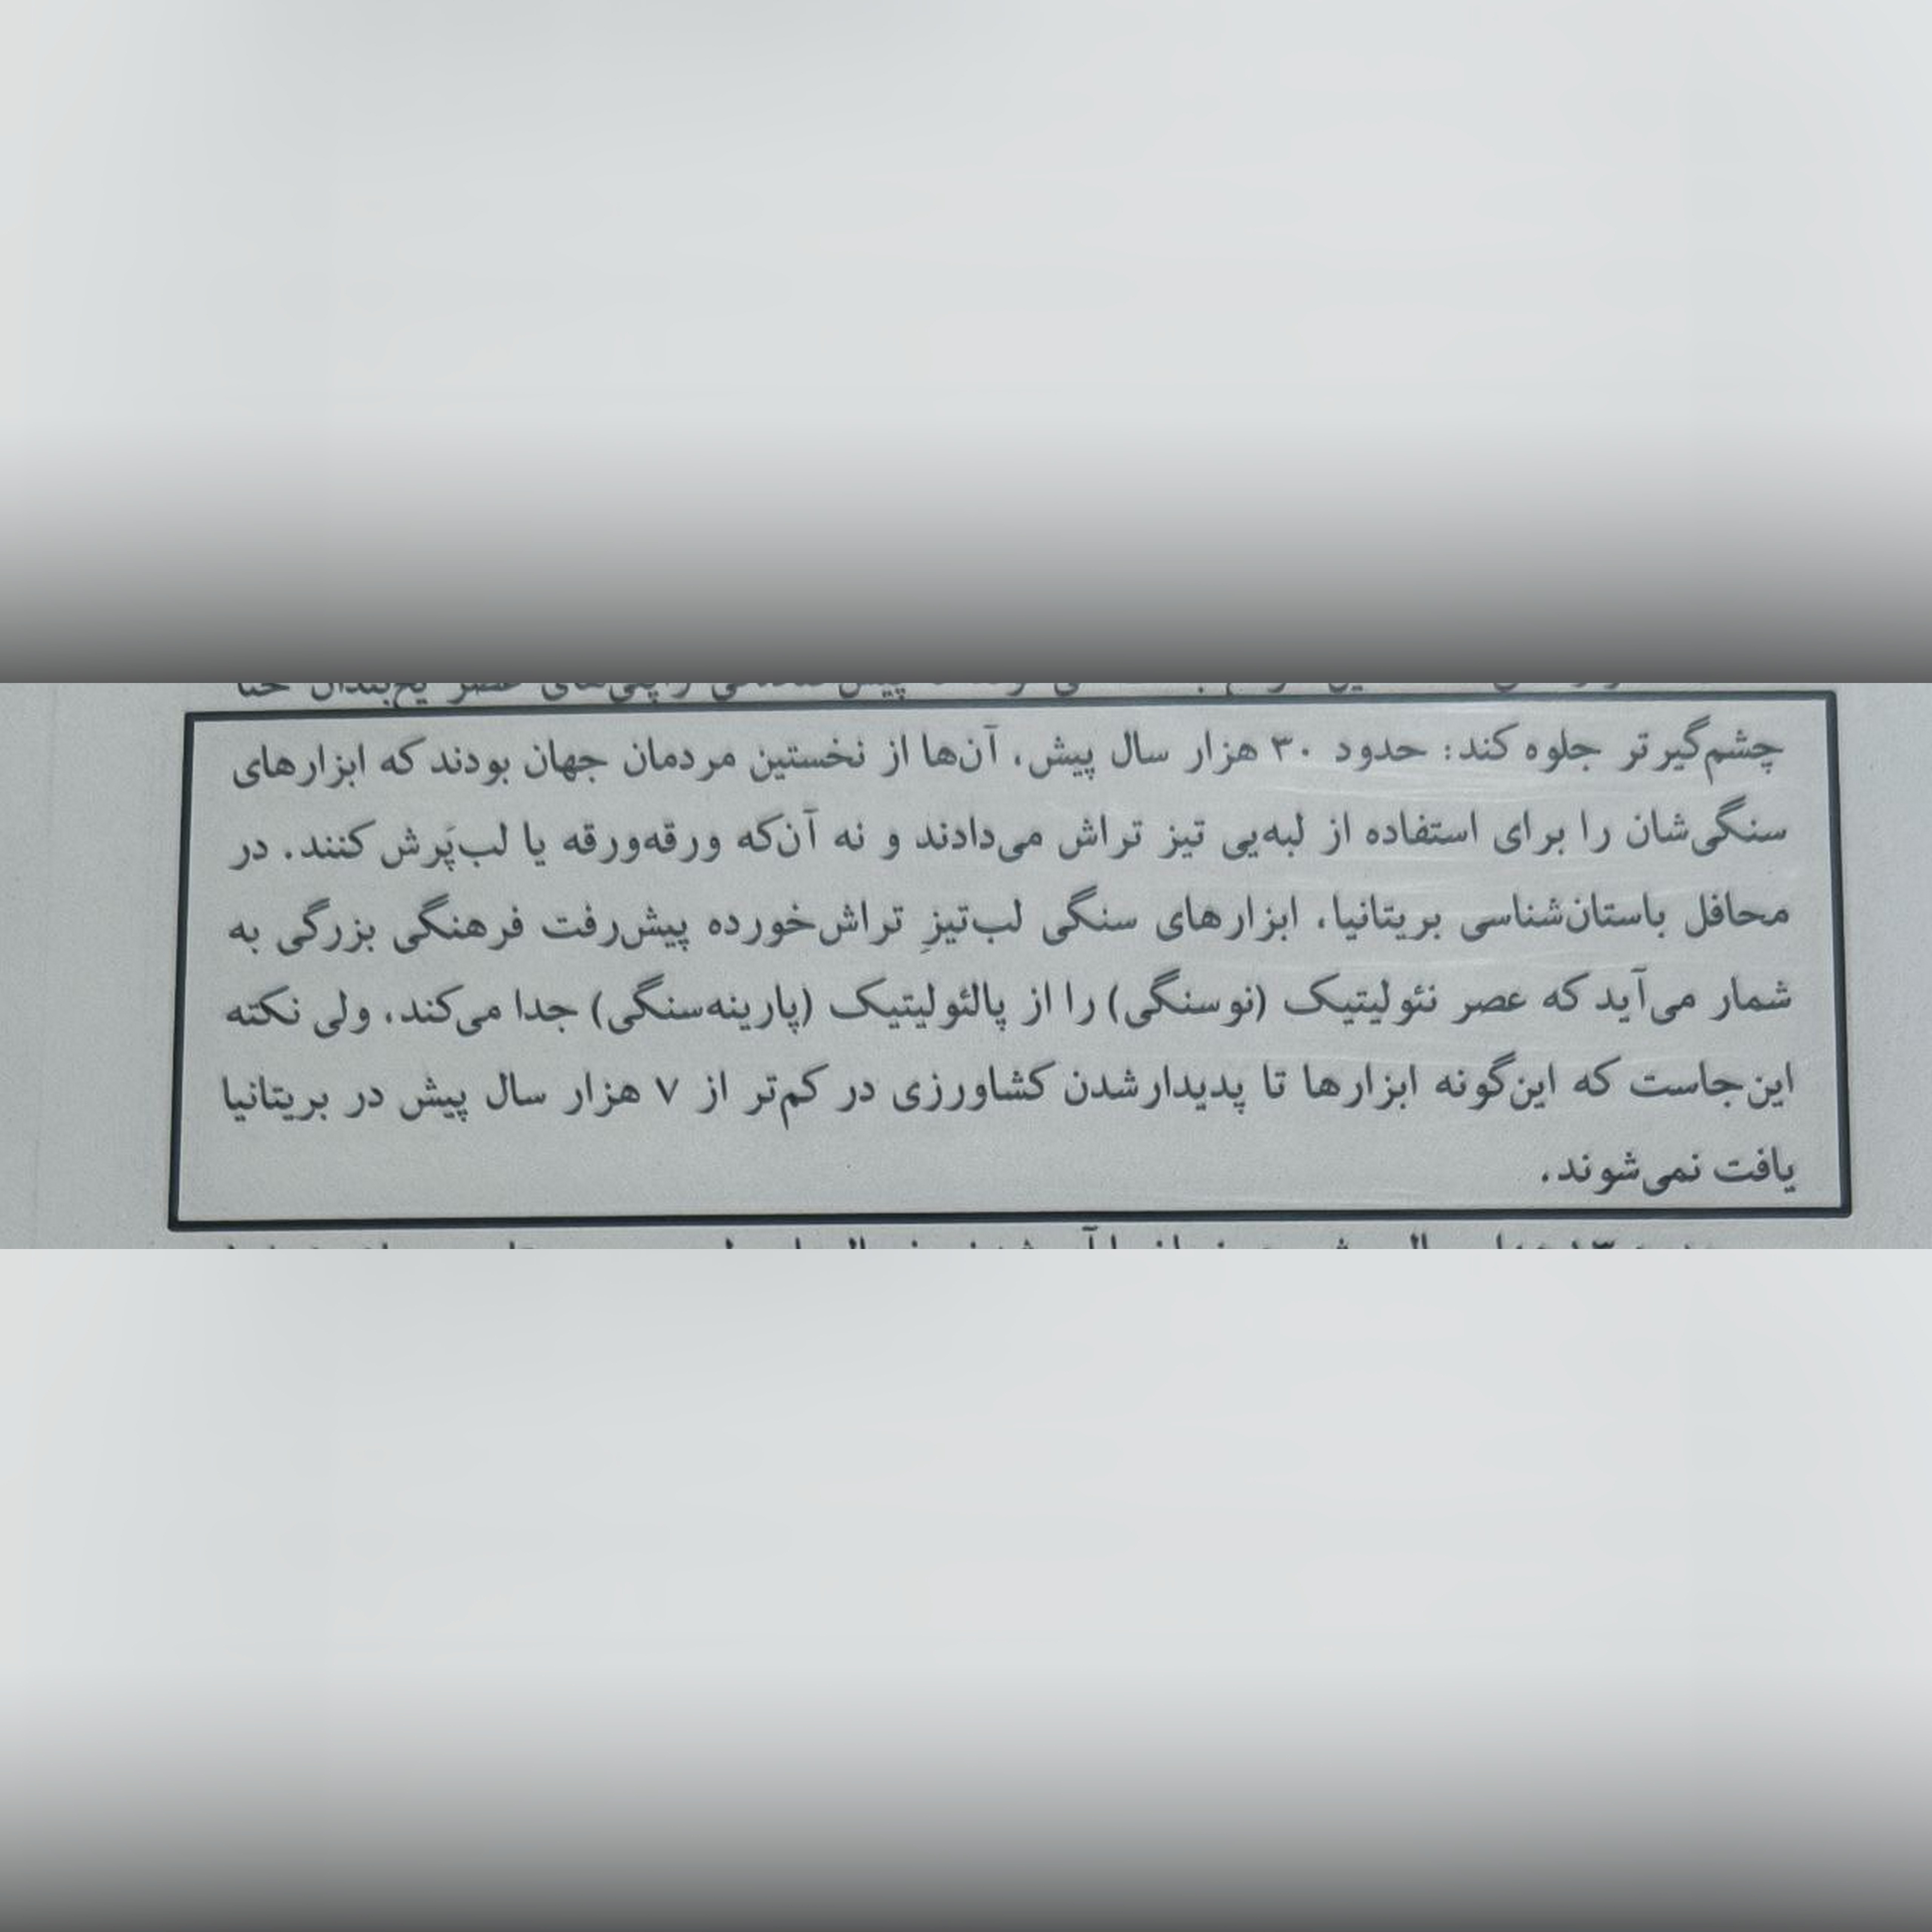 چشم‌گیرتر جلوه کند: حدود ۳۰ هزار سال پیش، آن‌ها از نخستین مردمان جهان بودند که ابزارهای
سنگی‌شان را برای استفاده از لبه‌یی تیز تراش می‌دادند و نه آن‌که ورقه‌ورقه یا لب‌پَرش کنند. در
محافل باستان‌شناسی بریتانیا، ابزارهای سنگی لب‌تیزِ تراش‌خورده پیش‌رفت فرهنگی بزرگی به
شمار می‌آید که عصر نئولیتیک (نوسنگی) را از پالئولیتیک (پارینه‌سنگی) جدا می‌کند، ولی نکته
این‌جاست که این‌گونه ابزارها تا پدیدارشدن کشاورزی در کم‌تر از ۷ هزار سال پیش در بریتانیا
یافت نمی‌شوند.